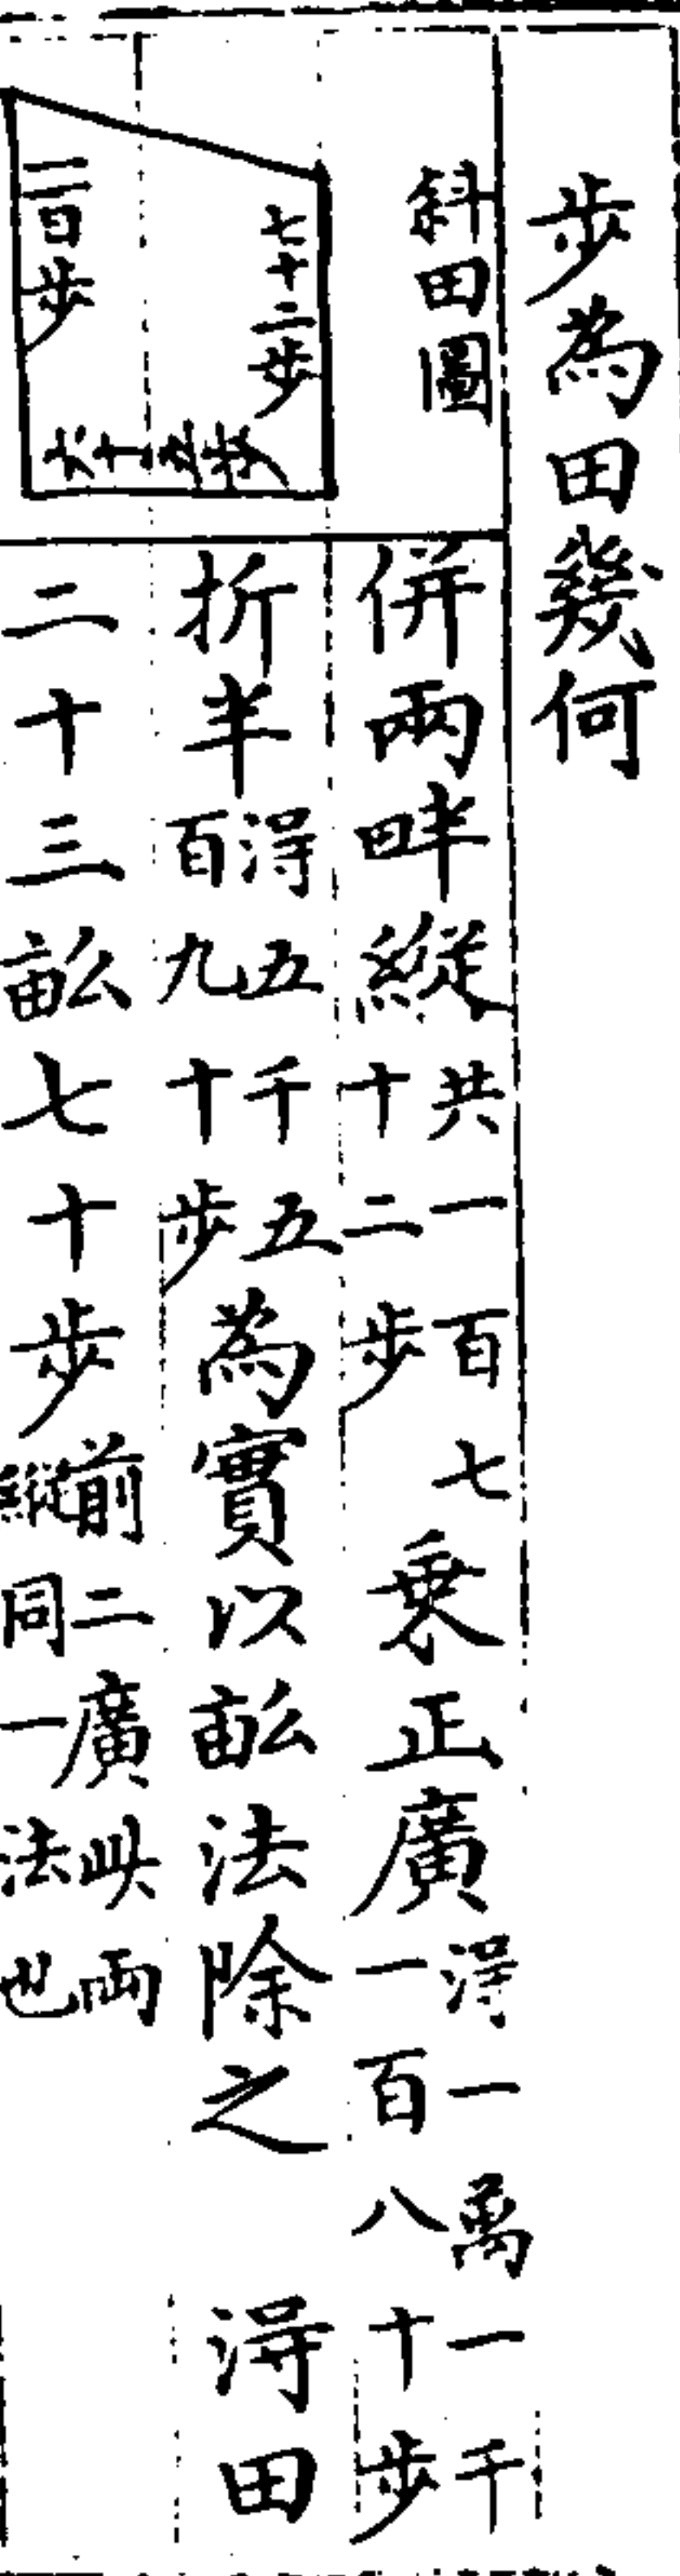 步為田幾何
斜田圖
七十二步
一百步
併兩畔縱共一百七十二步乗正廣得一萬一千一百八十步
折半得五千五百九十步為實以畝法除之　得田
二十三畝七十步前二廣此兩縱同一法也